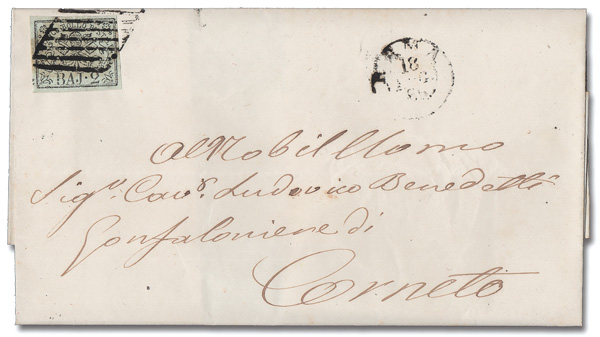 BAJ. 2
18
Al Nobil Uomo
Sigr. Cavr. Ludovico Benedetti
Gonfaloniere di
Corneto